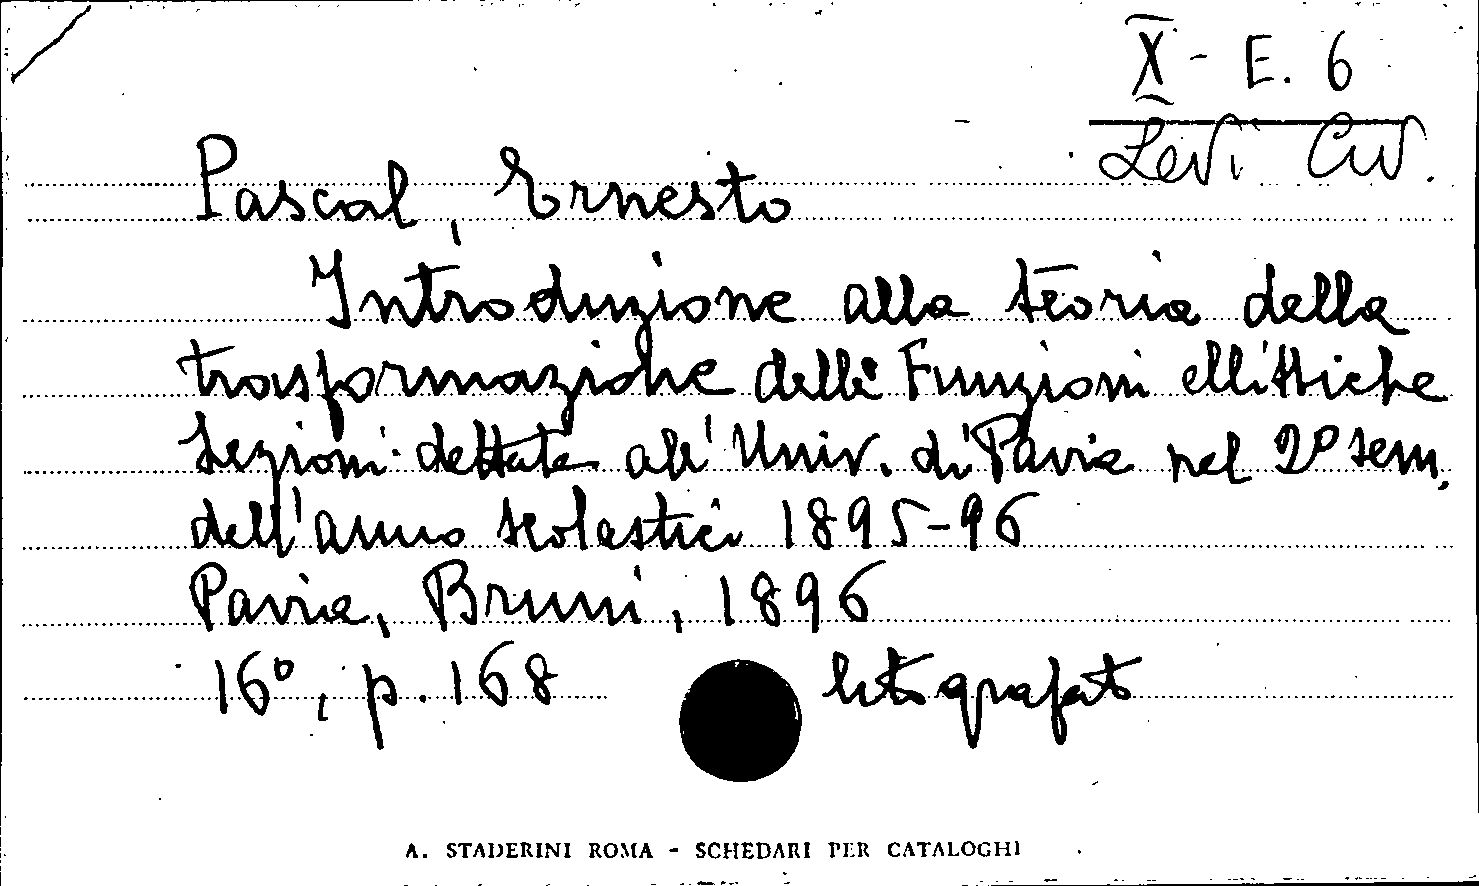 X - E. 6
Levi Civ.
Pascal, Ernesto
Introduzione alla teoria della
trasformazione delle Funzioni ellittiche
Lezioni dettate all' Univ. di Pavia nel 2º sem.
dell'anno scolastico 1895-96
Pavia, Bruni, 1896
16º, p. 168 litografato
A. STADERINI ROMA - SCHEDARI PER CATALOGHI